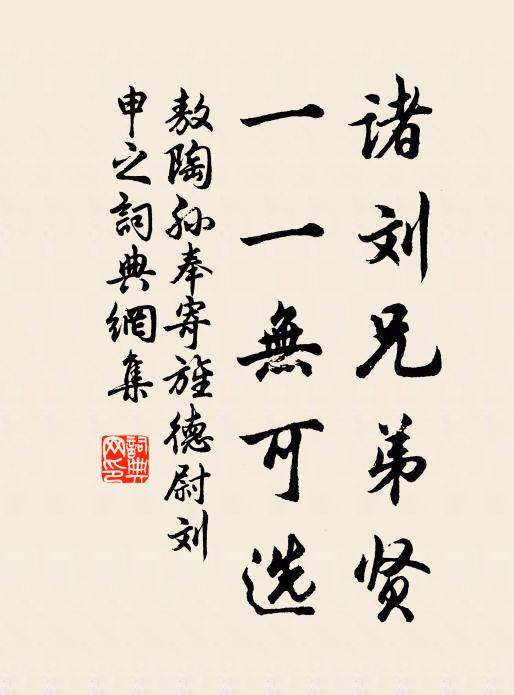 诸刘兄弟贤
一一無可选
敖陶孙奉寄旌德尉刘
申之詞典網集
詞典网印